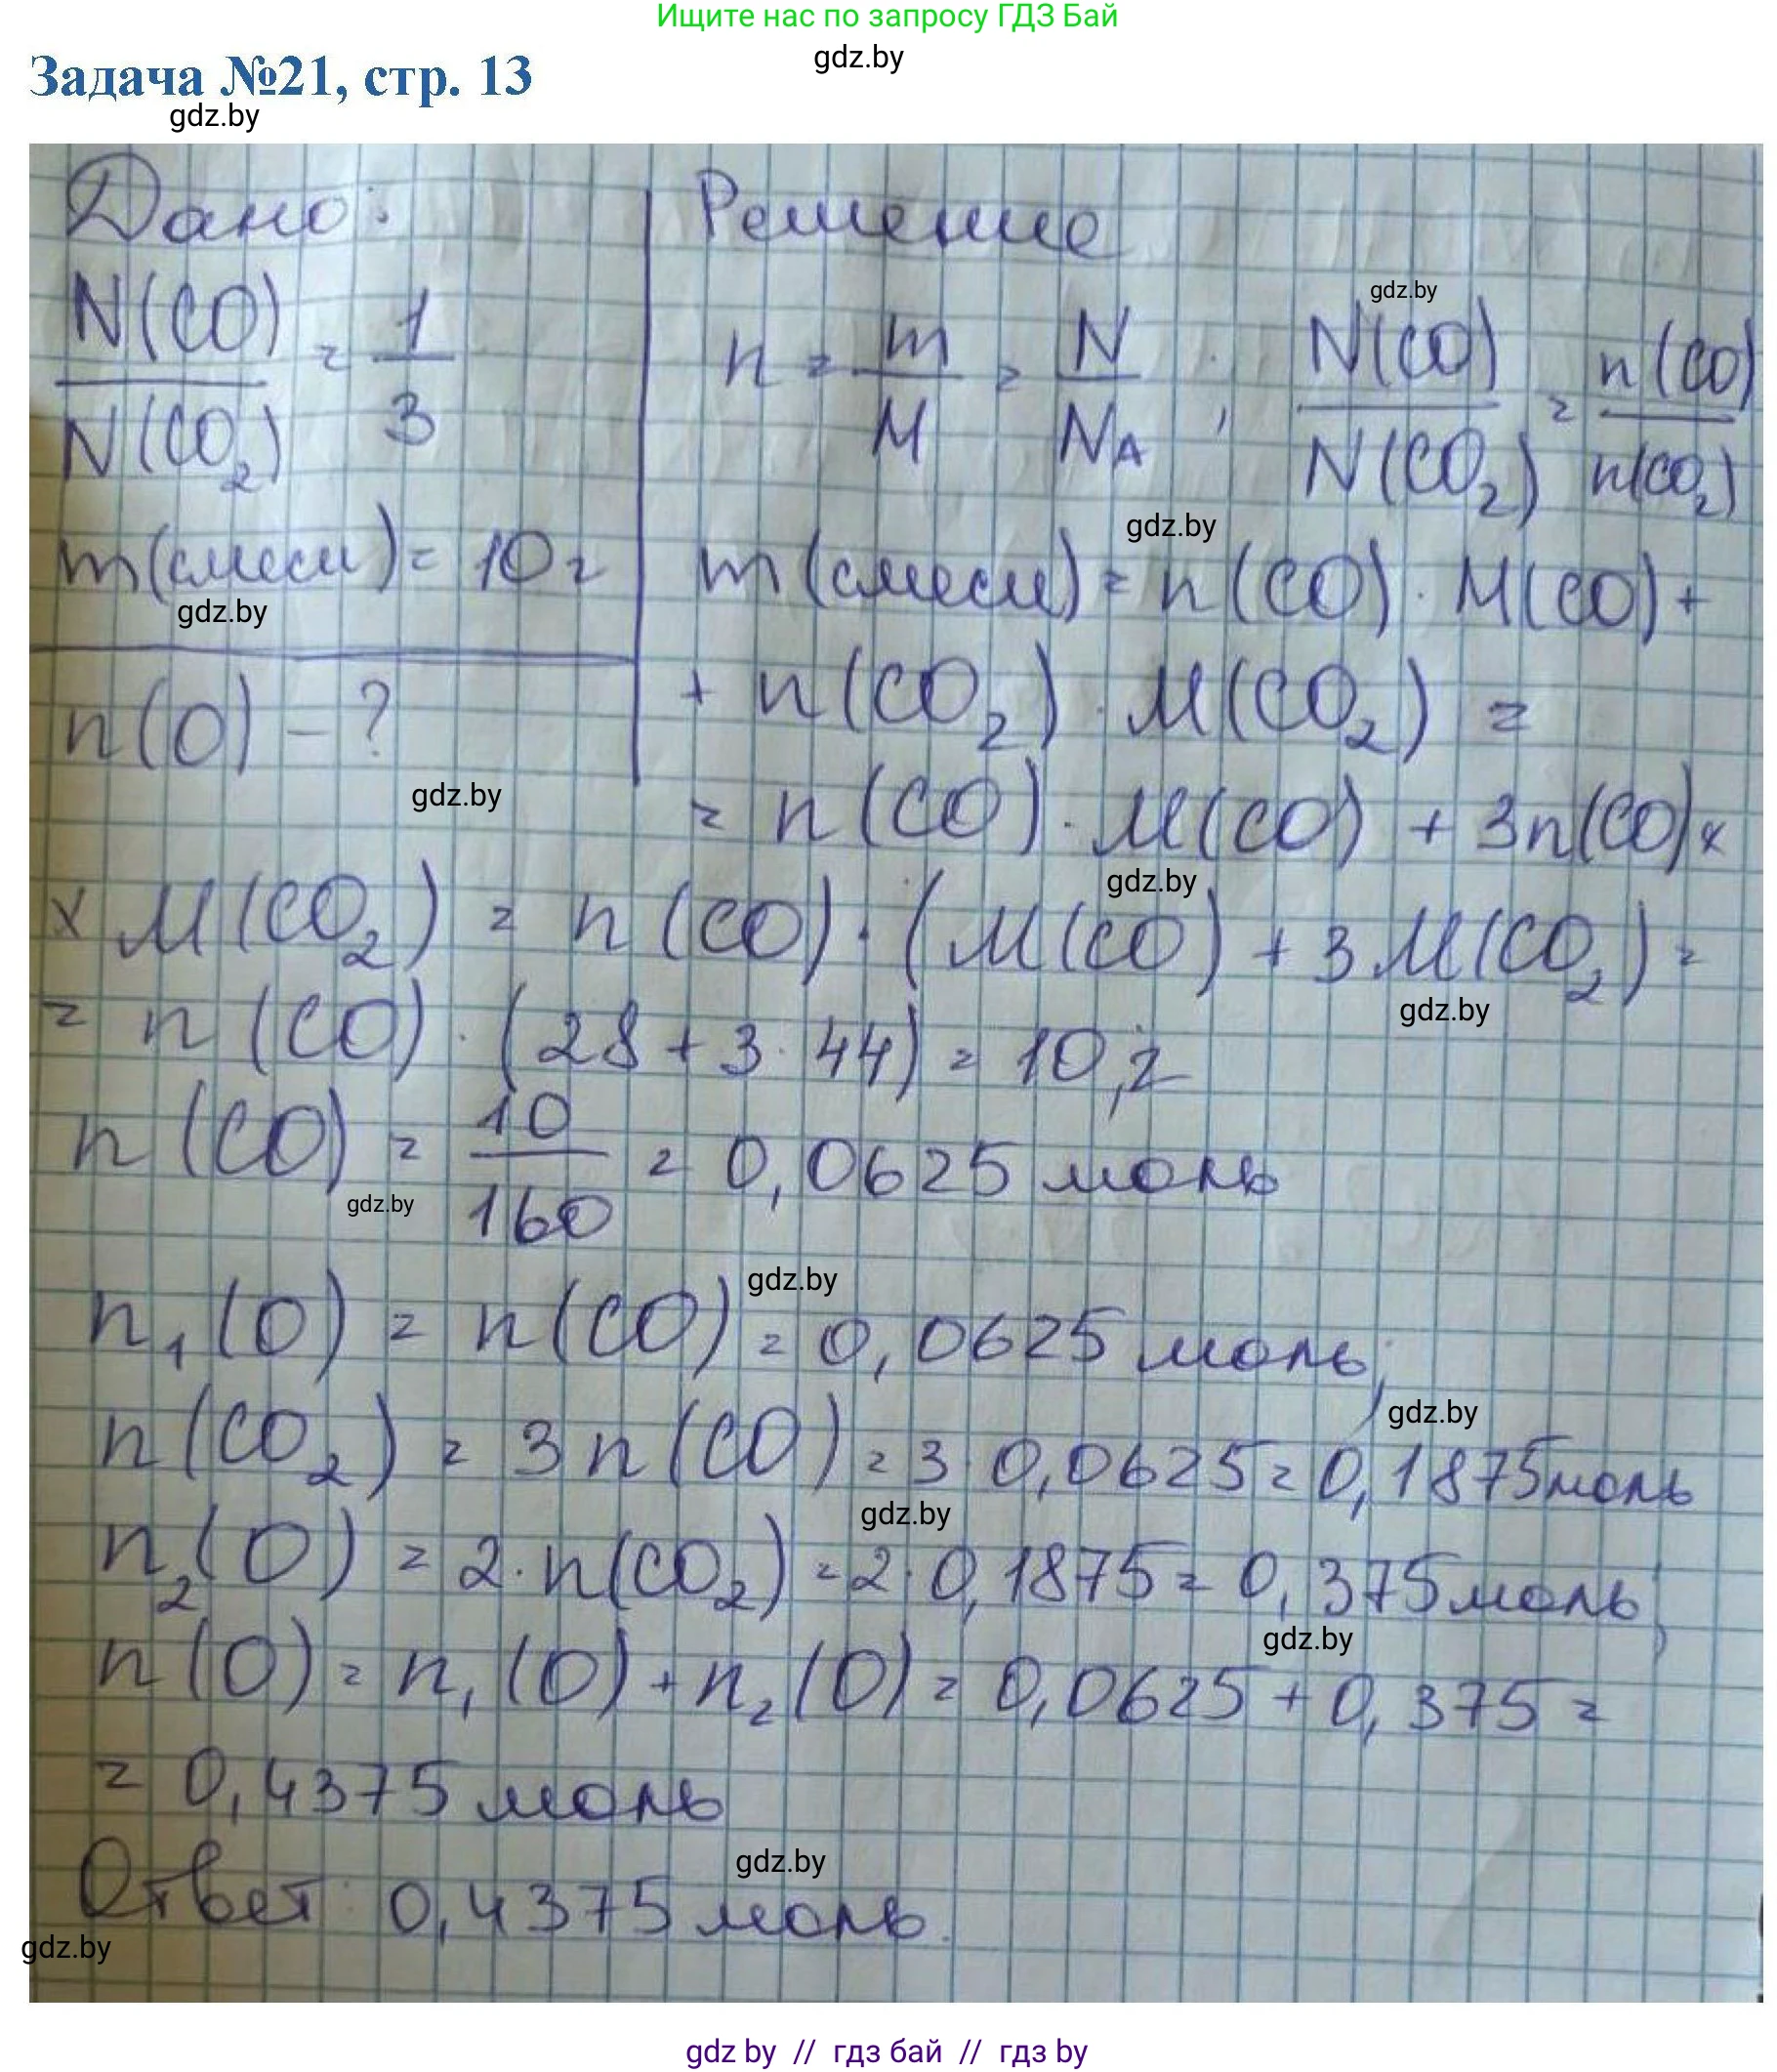 Ищите нас по запросу ГДЗ Бай
gdz.by
Задача №21, стр. 13
gdz.by
Дано:
N(CO)/N(CO₂) = 1/3
m(смеси) = 10 г
gdz.by
n(O) - ?
gdz.by
Решение
gdz.by
n = m/M = N/Nᴀ ; N(CO)/N(CO₂) = n(CO)/n(CO₂)
gdz.by
m(смеси) = n(CO) · M(CO) +
+ n(CO₂) · M(CO₂) =
= n(CO) · M(CO) + 3n(CO) ×
gdz.by
× M(CO₂) = n(CO) · (M(CO) + 3M(CO₂) =
gdz.by
= n(CO) · (28 + 3 · 44) = 10, г
n(CO) = 10/160 = 0,0625 моль
gdz.by
gdz.by
n₁(O) = n(CO) = 0,0625 моль;
gdz.by
n(CO₂) = 3n(CO) = 3 · 0,0625 = 0,1875 моль
gdz.by
n₂(O) = 2 · n(CO₂) = 2 · 0,1875 = 0,375 моль;
gdz.by
n(O) = n₁(O) + n₂(O) = 0,0625 + 0,375 =
= 0,4375 моль
gdz.by
Ответ: 0,4375 моль.
gdz.by
gdz by // гдз бай // гдз by